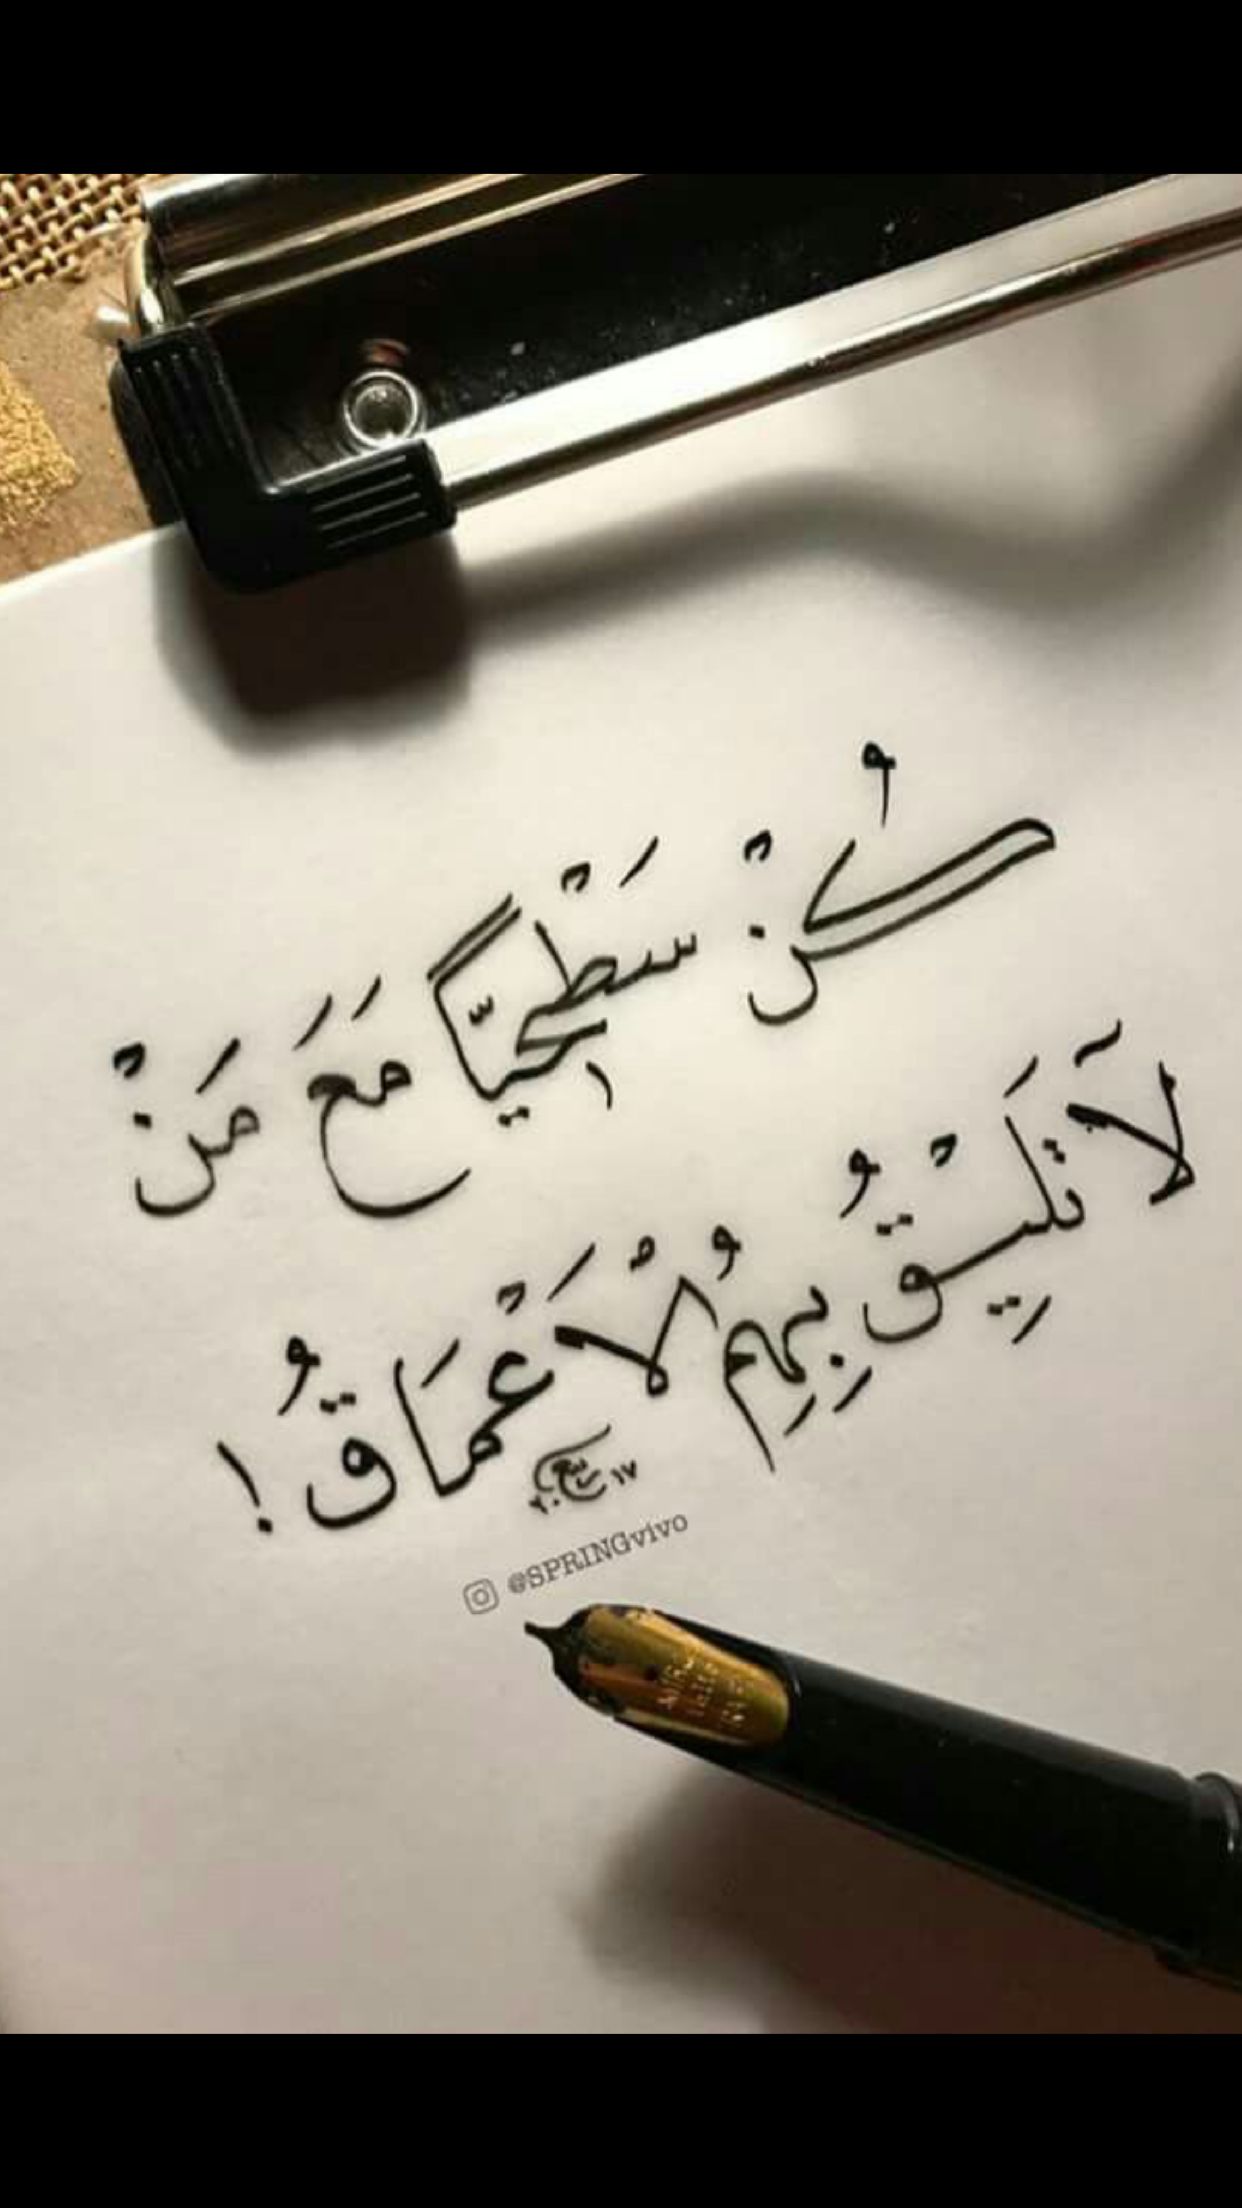 كُنْ سَطْحِيًّا مَعَ مَنْ
لَآ تَلِيْقُ بِهِمُ لْأَعْمَاقُ !
ربيع ٢٠١٧
@SPRINGvivo